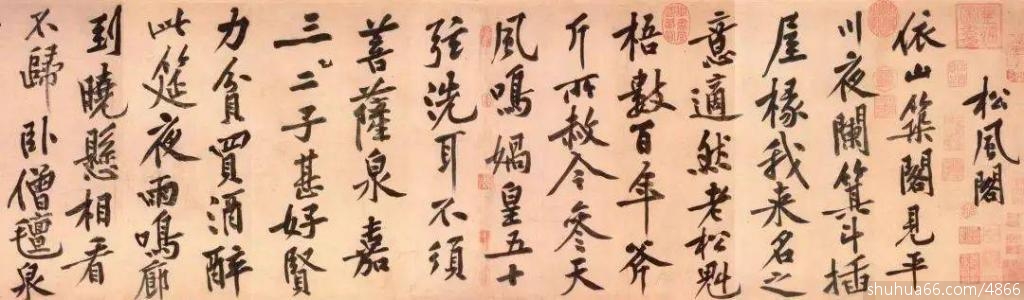 松風閣
依山築閣見平
川夜闌箕斗插
屋椽我来名之
意適然老松魁
梧數百年斧
斤所赦今參天
風鳴媧皇五十
弦洗耳不須
菩薩泉嘉
三二子甚好賢
力貧買酒醉
此筵夜雨鳴廊
到曉懸相看
不歸卧僧氈泉
shuhua66.com/4866